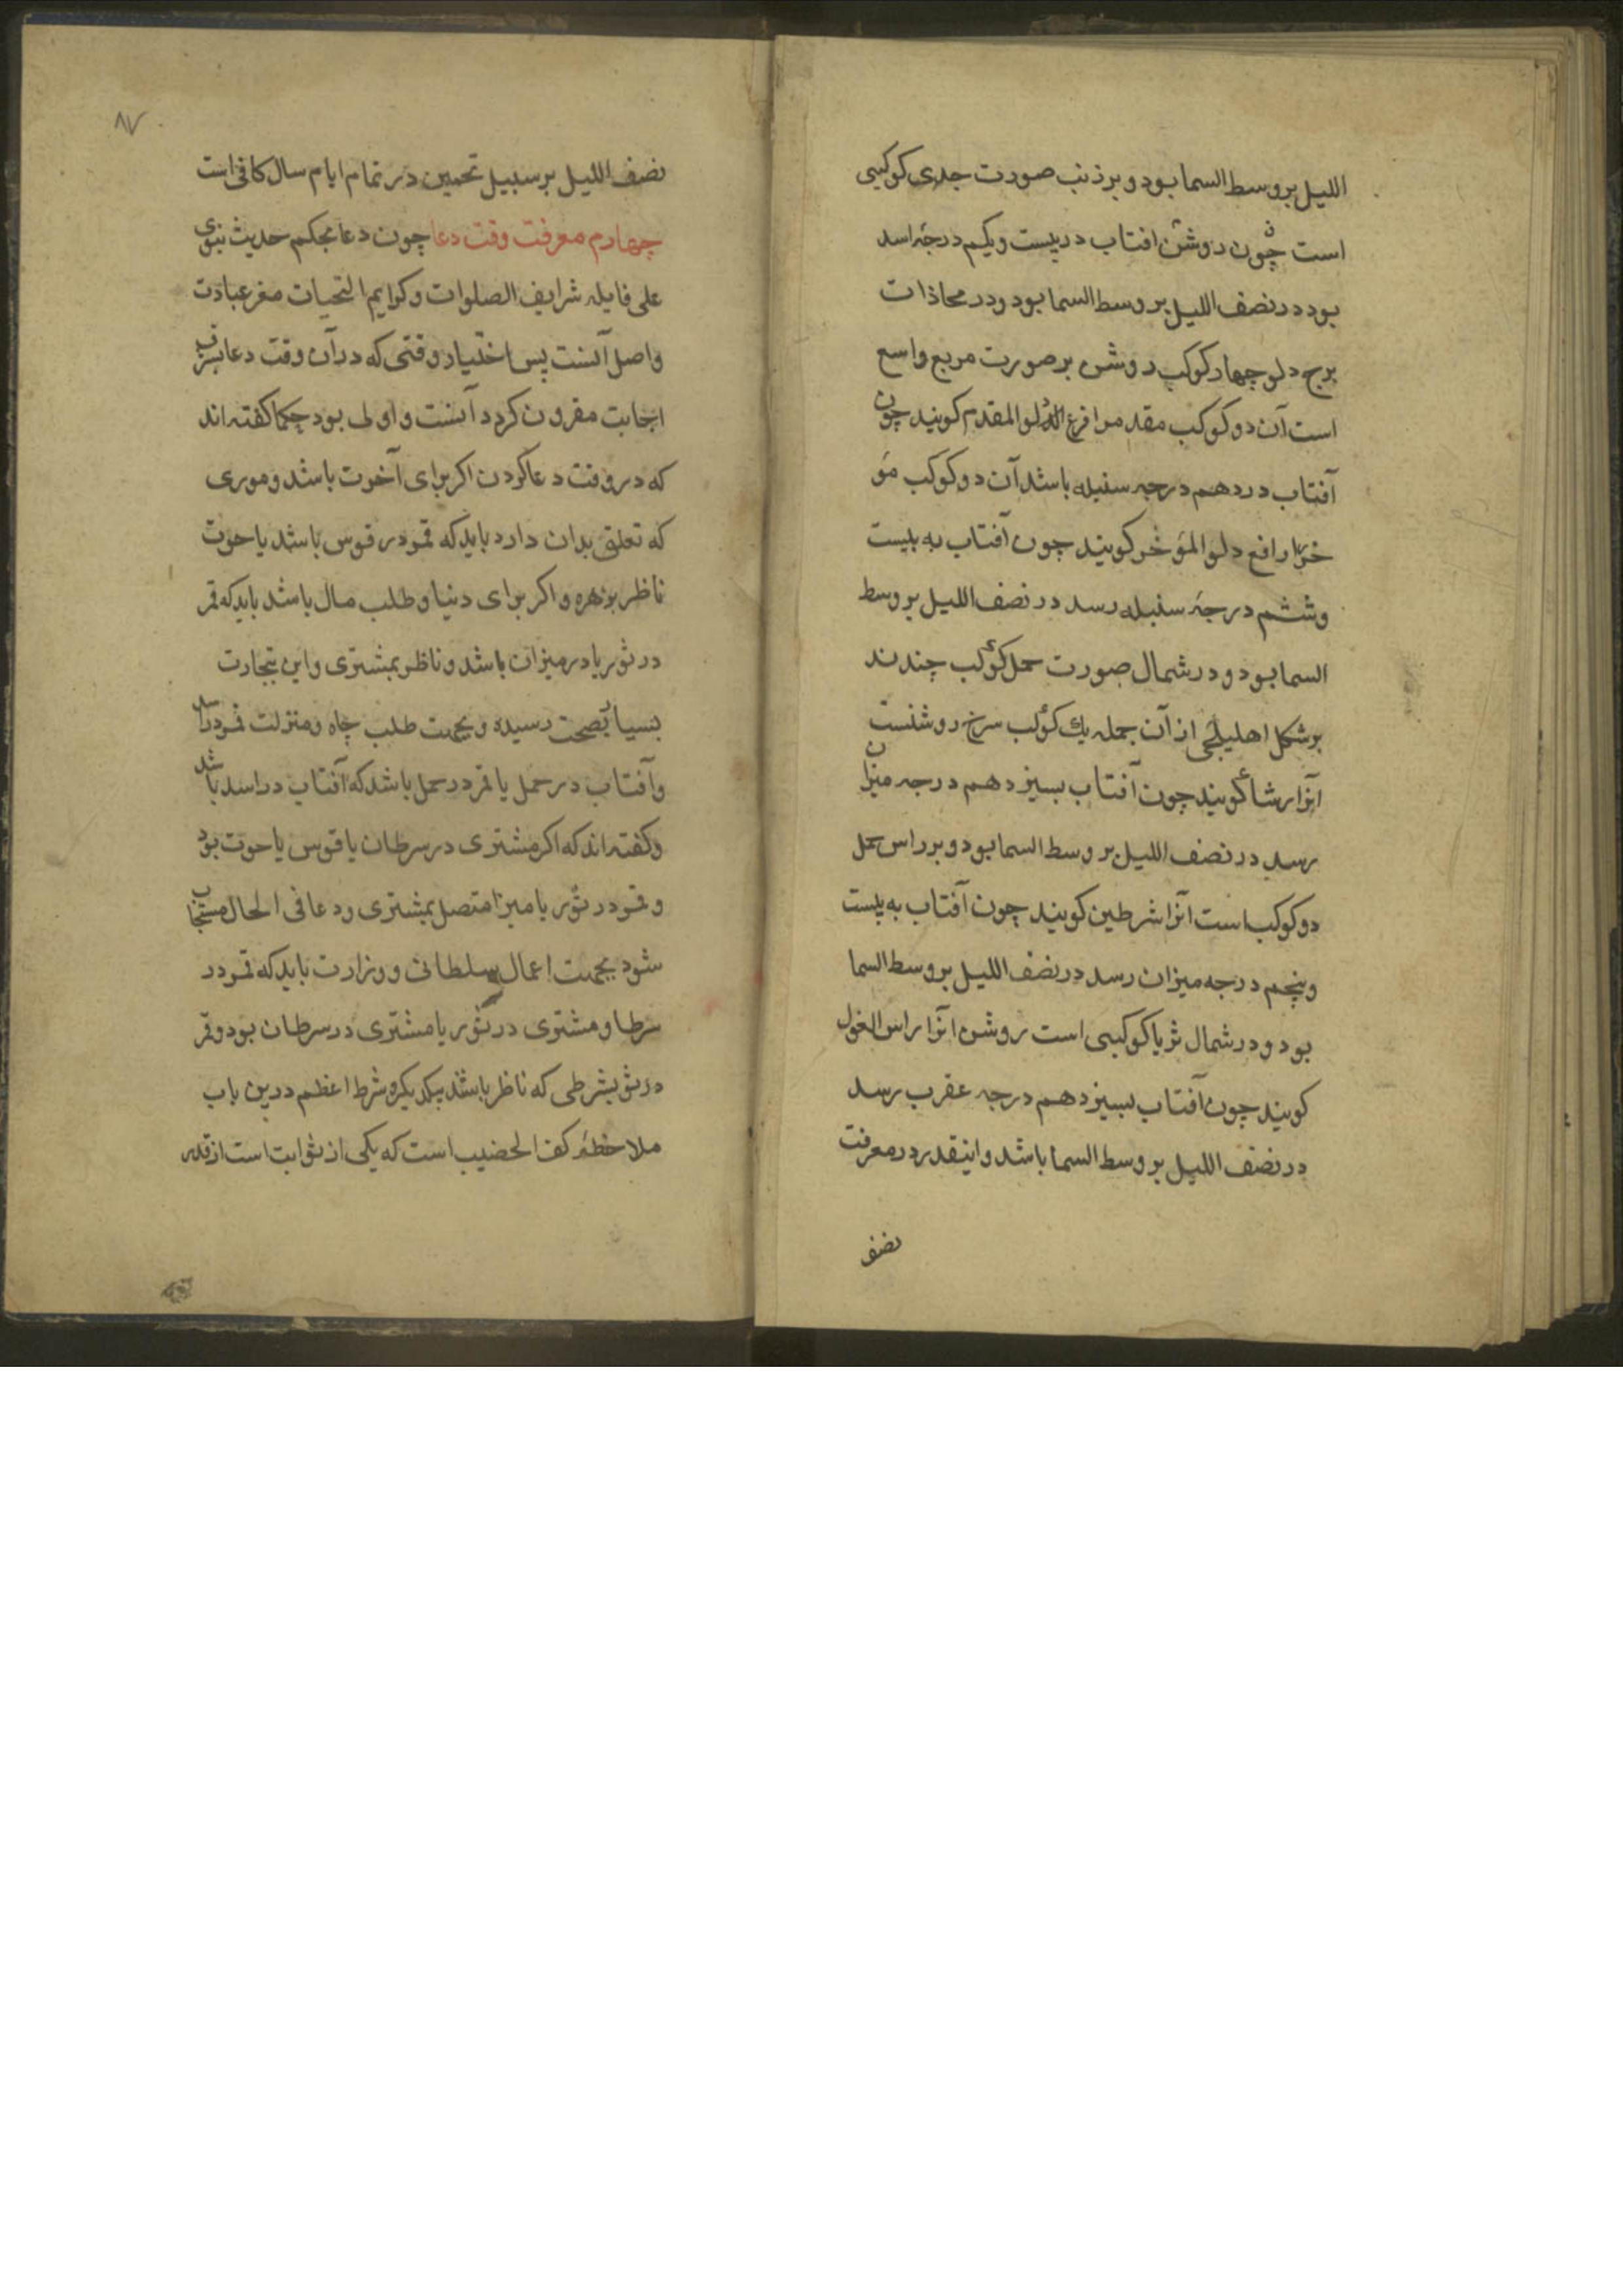 اللیل بر وسط السما بود و بر ذنب صورت جدی کوکبی
است چون روشن افتاب در بیست و یکم درجهٔ اسد
بود در نصف اللیل بر وسط السما بود و در محاذات
برج دلو چهار کوکب روشن بر صورت مربع واسع
است آن دو کوکب مقدم را فرغ الدلو المقدم کویند چون
آفتاب در دهم درجه سنبله باشد آن دو کوکب مؤ
خر را فرغ دلو المؤخر کویند چون آفتاب به بیست
و ششم درجهٔ سنبله رسد در نصف اللیل بر وسط
السما بود و در شمال صورت حمل کوکب چندند
بر شکل اهلیلجی از آن جمله یك کوکب سرخ روشنست
آنرا رشا کویند چون آفتاب بسیزدهم درجه میزان
رسد در نصف اللیل بر وسط السما بود و بر راس حمل
دو کوکب است انرا شرطین کویند چون آفتاب به بیست
و پنجم درجه میزان رسد در نصف اللیل بر وسط السما
بود و در شمال ثریا کوکبی است روشن انرا راس الغول
کویند چون آفتاب بسیزدهم درجه عقرب رسد
در نصف اللیل بر وسط السما باشد و اینقدر در معرفت
نصف
۸۷
نصف اللیل بر سبیل تخمین در تمام ایام سال کافی است
چهارم معرفت وقت دعا چون دعا بحکم حدیث نبوی
علی قایله شرایف الصلوات و کرایم التحیات مغز عبادت
و اصل آنست پس اختیار وقتی که در آن وقت دعا بشرف
اجابت مقرون کردد آنست و اولی بود حکما کفته اند
که در وقت دعا کردن اکر برای آخرت باشد و موری
که تعلق بدان دارد باید که قمر در قوس باشد یا حوت
ناظر بزهره و اکر برای دنیا و طلب مال باشد باید که قمر
در ثور یا در میزان باشد و ناظر بمشتری و این بتجارت
بسیار بصحت رسیده و بجهت طلب جاه و منزلت قمر در
و آفتاب در حمل یا قمر در حمل باشد که آفتاب در اسد باشد
و کفته اند که اکر مشتری در سرطان یا قوس یا حوت بود
و قمر در ثور یا میزا متصل بمشتری و دعا فی الحال مستجاب
شود بجهت اعمال سلطانی و وزارت باید که قمر در
سرطا و مشتری در ثور یا مشتری در سرطان بود و قمر
در ثو بشرطی که ناظر باشند بیکدیکر و شرط اعظم درین باب
ملاحظهٔ کف الخضیب است که یکی از ثوابت است از قدر